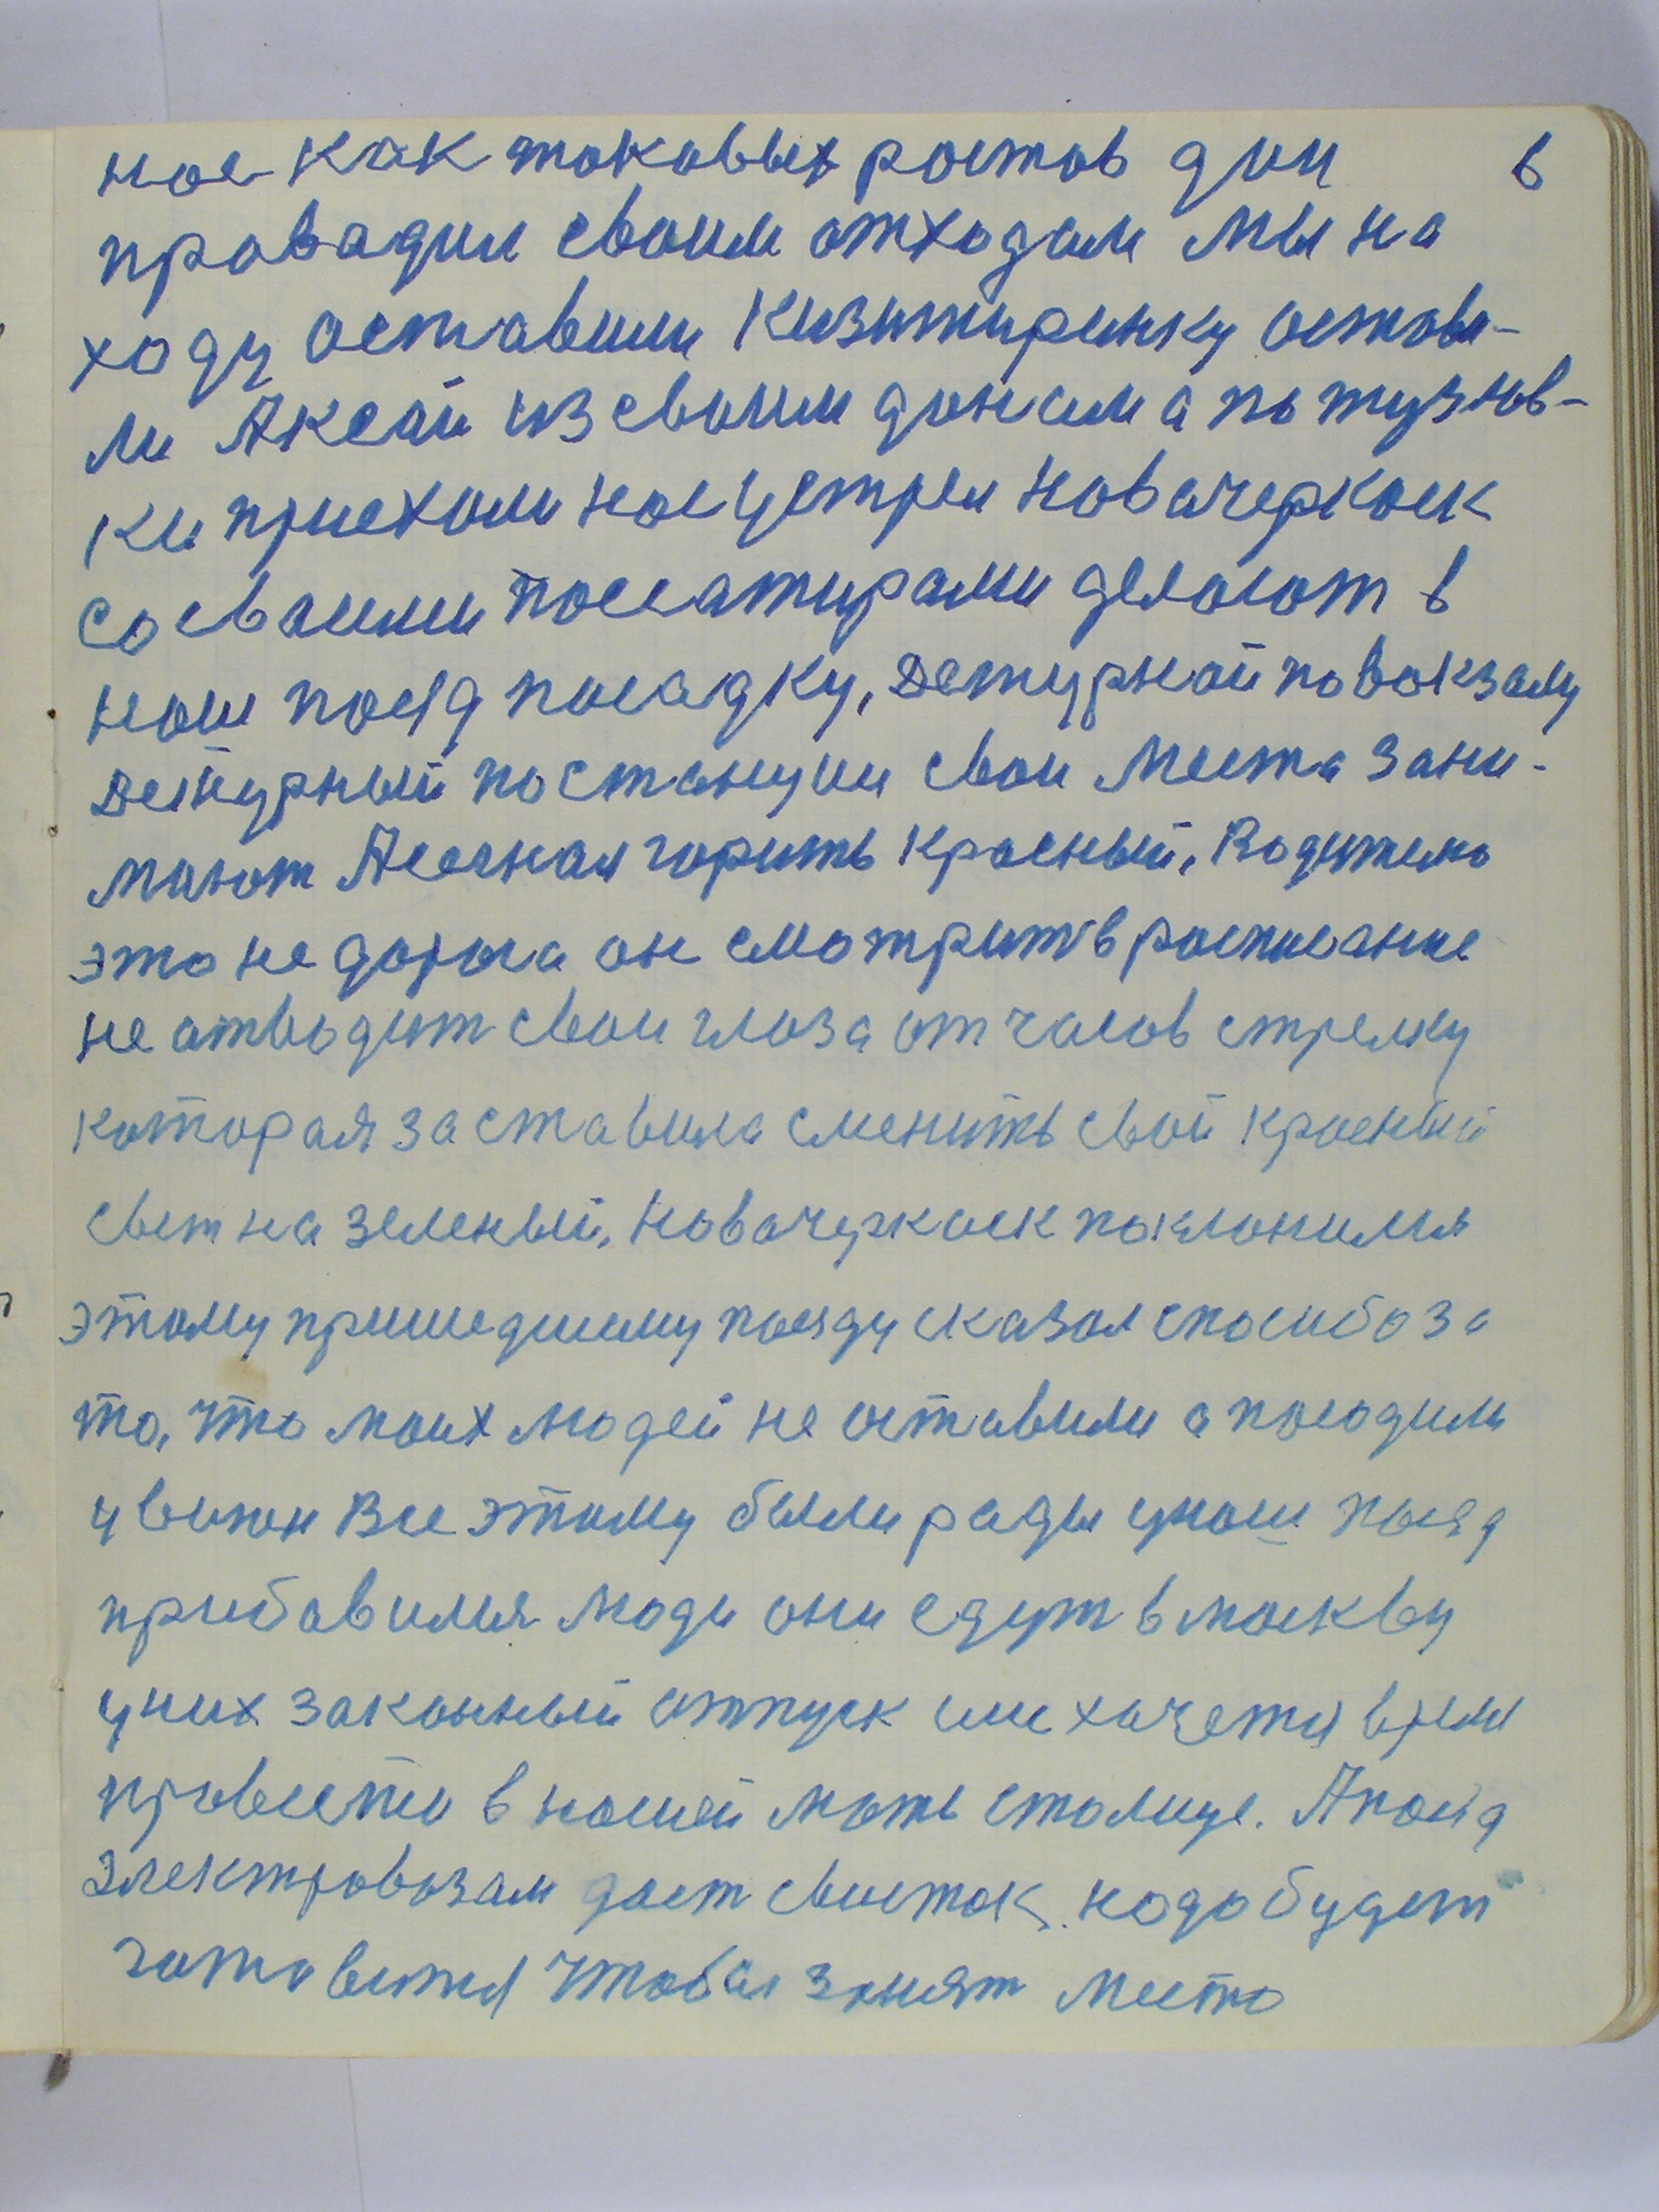 нас как таковых ростов дон 6
проводил своим отходам мы на
ходу оставили Кизитиринку остави-
ли Аксай из своим донам а по тузлов-
ки приехали нас устрел Новачеркаск
со своими пассатирами делают в
наш поезд посадку, Детурнай по вокзалу
Детурный по станции свои места зани-
мают Лесная горить красный, Водитель
это не дорога он смотрит в расписание
не отводит свои глаза от часов стрелку
которая заставила сменить свой красный
свет на зеленый, Новачеркаск поклонился
этому пришедшему поезду сказал спасибо за
то, что моих людей не оставили а посодили
у вагон Все этому были рады унаш поезд
прибавился люди они едут в москву
у них законный отпуск им хачется врем
провести в нашей мать столице. А поезд
Электровозам дает свисток. надо будет
готовится чтобы занят место